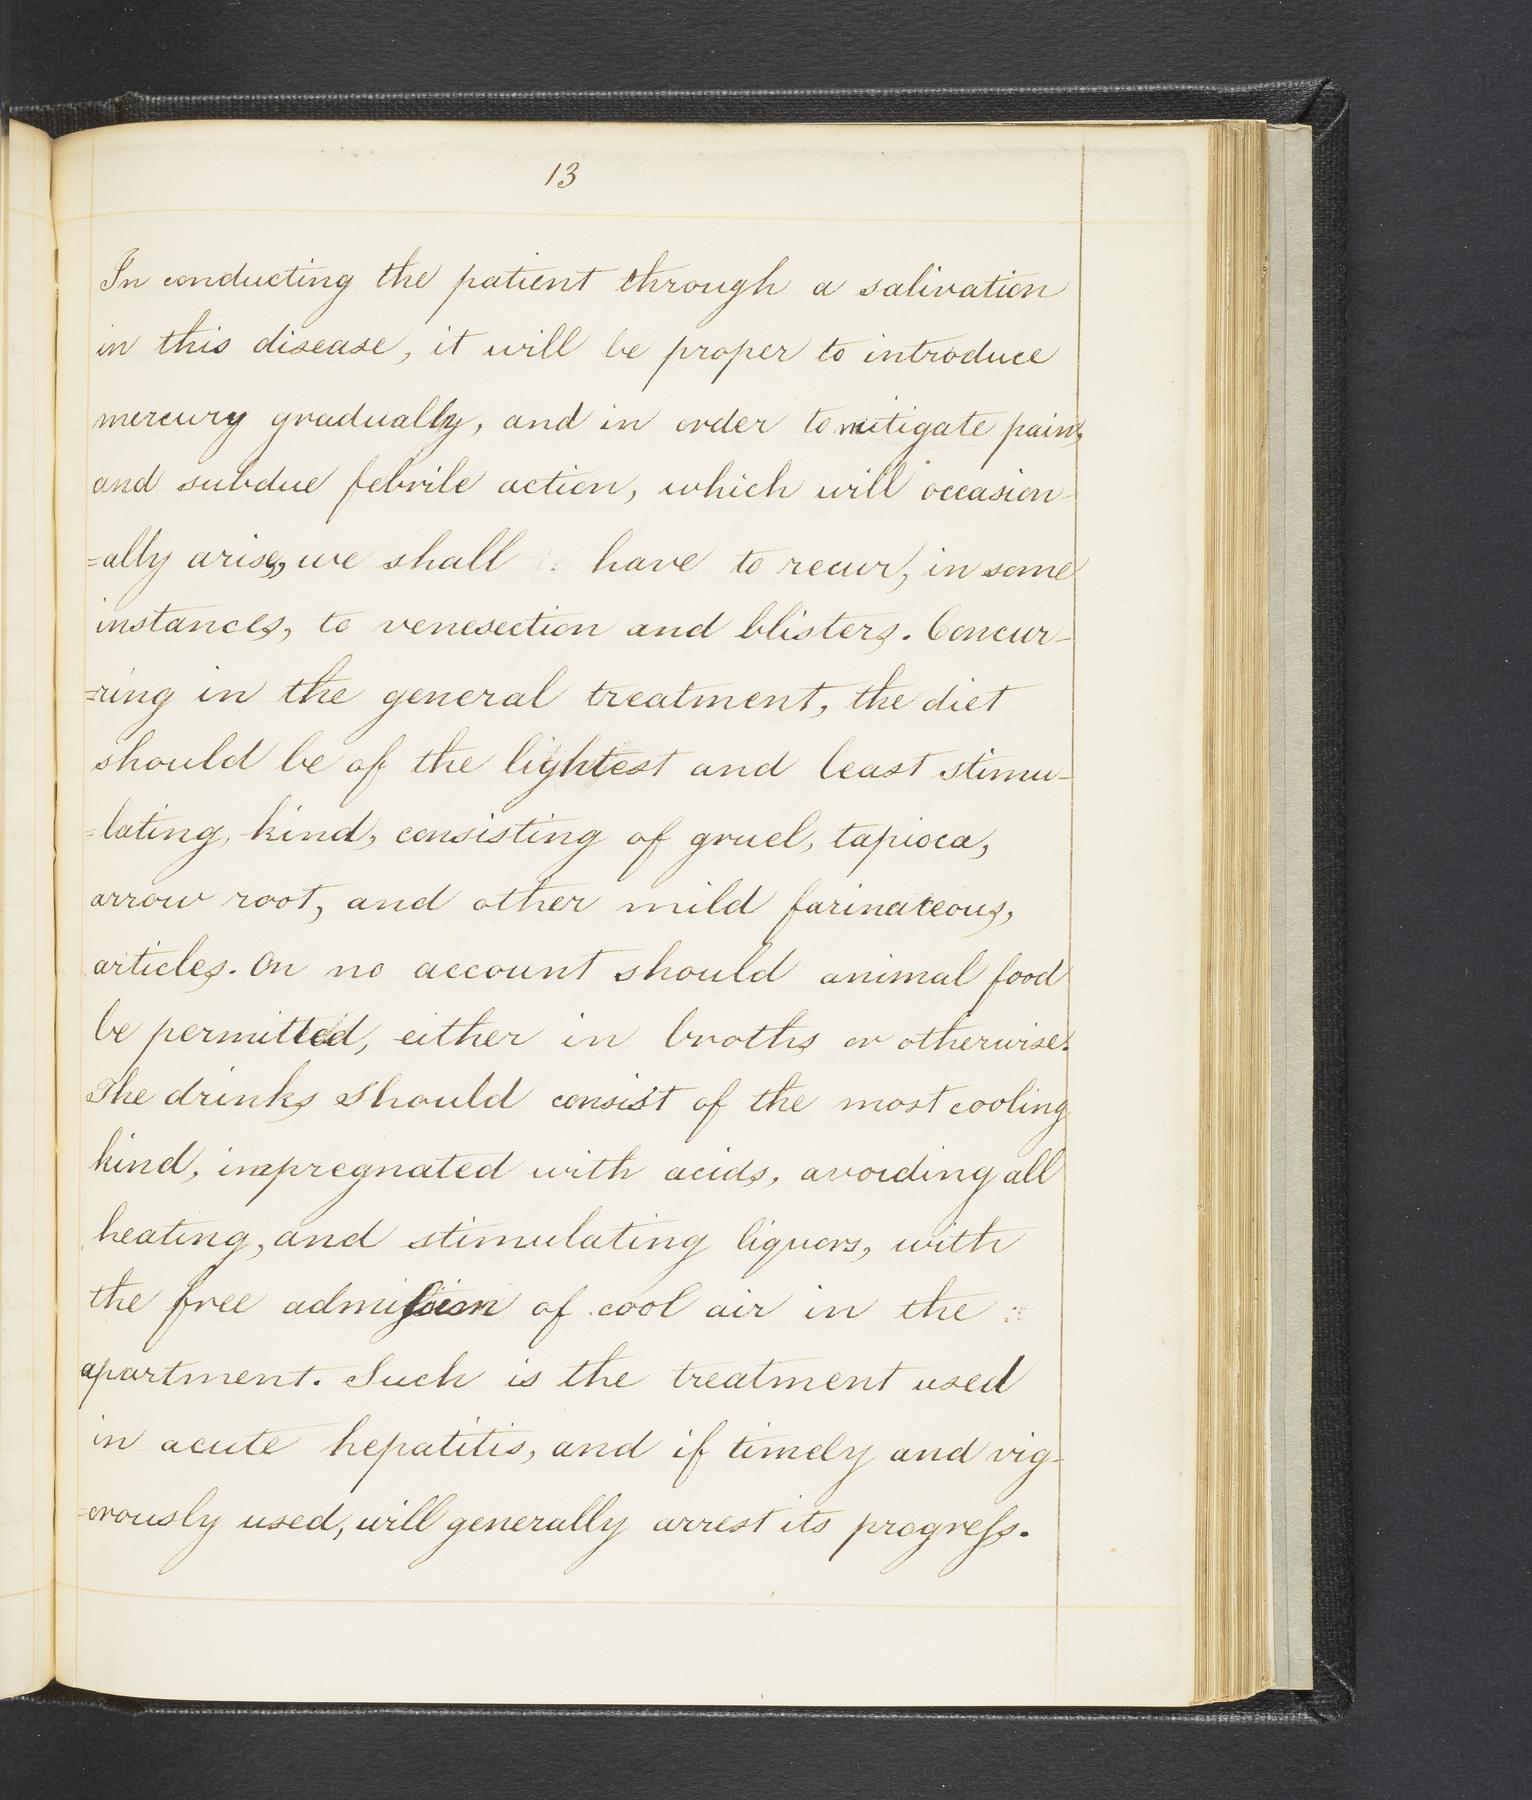 13
In conducting the patient through a salivation
in this disease, it will be proper to introduce
mercury gradually, and in order to mitigate pain,
and subdue febrile action, which will occasion-
=ally arise, we shall have to recur, in some
instances, to venesection and blisters. Concur-
=ring in the general treatment, the diet
should be of the lightest and least stimu-
=lating, kind, consisting of gruel, tapioca,
arrow root, and other mild farinaceous,
articles. On no account should animal food
be permitted, either in broths or otherwise.
The drinks should consist of the most cooling
kind, impregnated with acids, avoiding all
heating, and stimulating liquors, with
the free admiſsion of cool air in the
apartment. Such is the treatment used
in acute hepatitis, and if timely and vig-
=orously used, will generally arrest its progreſs.